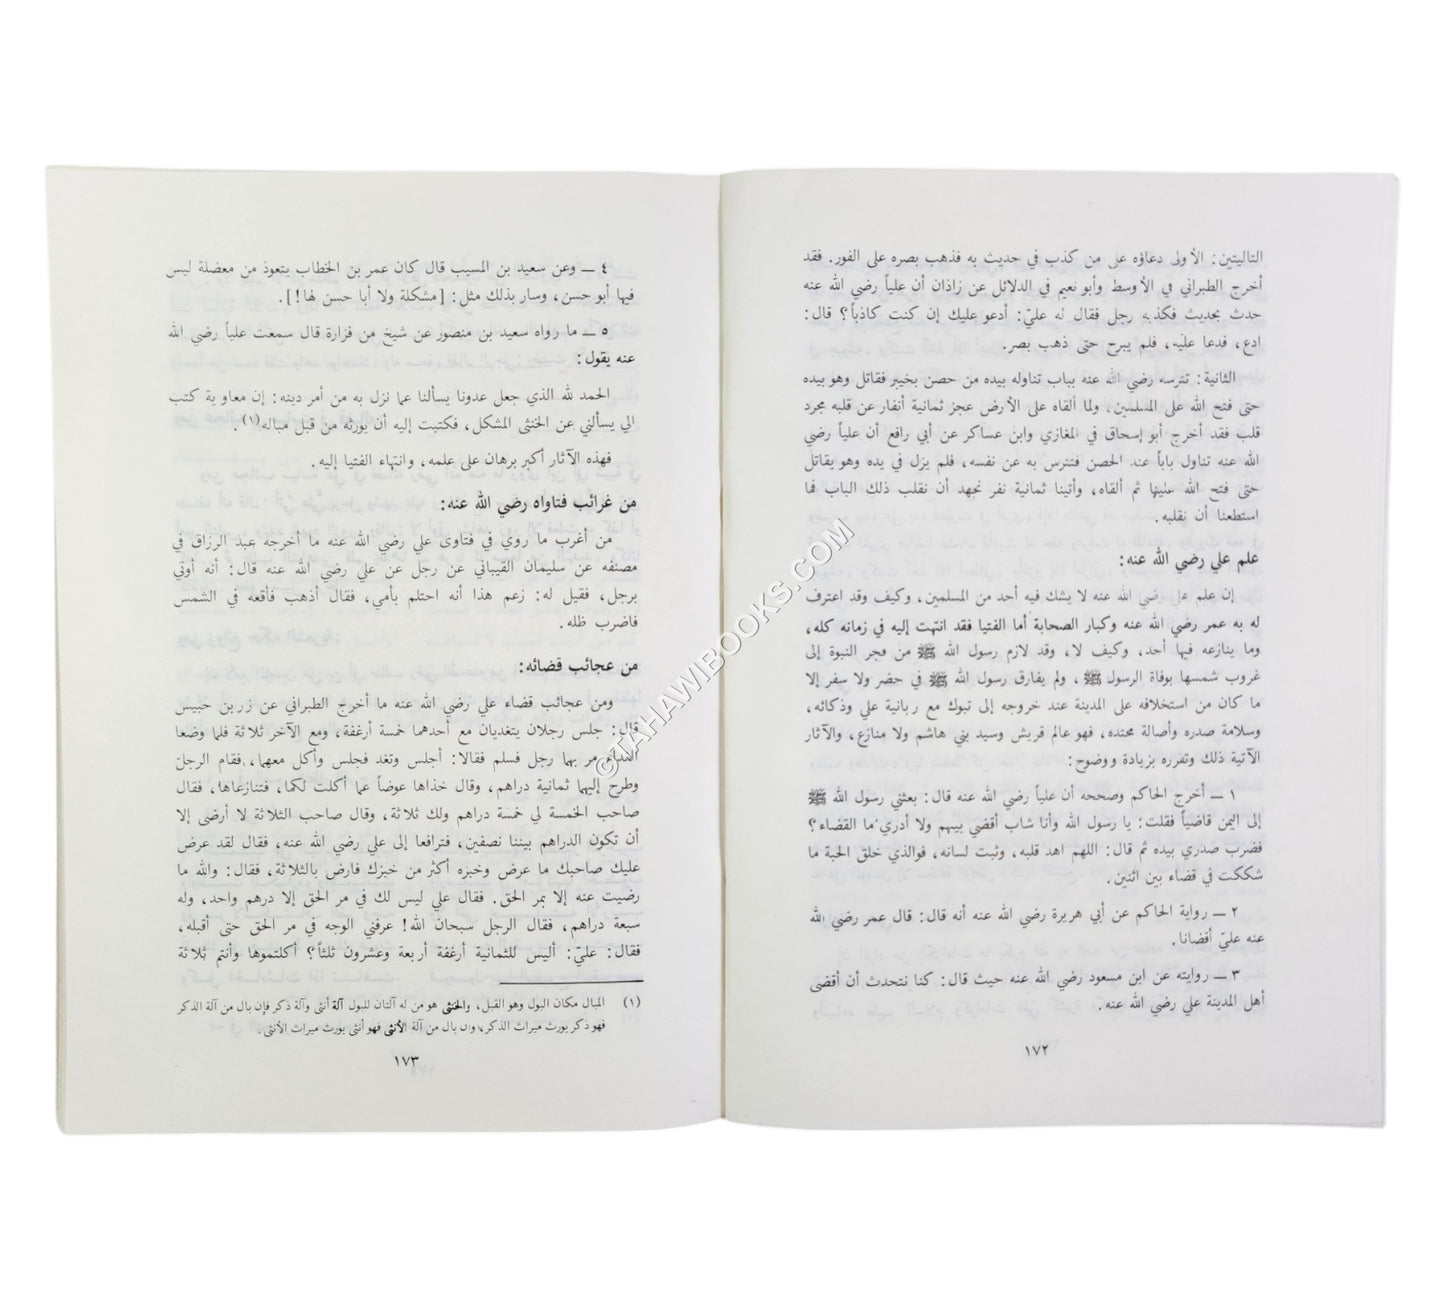 التاليتين: الأولى دعاؤه على من كذب في حديث به فذهب بصره على الفور. فقد
أخرج الطبراني في الأوسط وأبو نعيم في الدلائل عن زاذان أن علياً رضي الله عنه
حدث بحديث فكذبه رجل فقال له عليّ: أدعو عليك إن كنت كاذباً؟ قال:
ادع، فدعا عليه، فلم يبرح حتى ذهب بصر.
الثانية: تترسه رضي الله عنه بباب تناوله بيده من حصن بخيبر فقاتل وهو بيده
حتى فتح الله على المسلمين، ولما ألقاه على الأرض عجز ثمانية أنفار عن قلبه مجرد
قلب فقد أخرج أبو إسحاق في المغازي وابن عساكر عن أبي رافع أن علياً رضي
الله عنه تناول باباً عند الحصن فتترس به عن نفسه، فلم يزل في يده وهو يقاتل
حتى فتح الله علينا ثم ألقاه، وأتينا ثمانية نفر نجهد أن نقلب ذلك الباب فما
استطعنا أن نقلبه.
علم علي رضي الله عنه:
إن علم علي رضي الله عنه لا يشك فيه أحد من المسلمين، وكيف وقد اعترف
له به عمر رضي الله عنه وكبار الصحابة أما الفتيا فقد انتهت إليه في زمانه كله،
وما ينازعه فيها أحد، وكيف لا، وقد لازم رسول الله ﷺ من فجر النبوة إلى
غروب شمسها بوفاة الرسول ﷺ، ولم يفارق رسول الله ﷺ في حضر ولا سفر إلا
ما كان من استخلافه على المدينة عند خروجه إلى تبوك مع ربانية علي وذكائه،
وسلامة صدره وأصالة محتده، فهو عالم قريش وسيد بني هاشم ولا منازع، والآثار
الآتية ذلك وتقرره بزيادة ووضوح:
١ ــ أخرج الحاكم وصححه أن علياً رضي الله عنه قال: بعثني رسول الله ﷺ
إلى اليمن قاضياً فقلت: يا رسول الله وأنا شاب أقضي بينهم ولا أدري ما القضاء؟
فضرب صدري بيده ثم قال: اللهم اهد قلبه، وثبت لسانه، فوالذي خلق الحبة ما
شككت في قضاء بين اثنين.
٢ ــ رواية الحاكم عن أبي هريرة رضي الله عنه أنه قال: قال عمر رضي الله
عنه عليّ أقضانا.
٣ ــ روايته عن ابن مسعود رضي الله عنه حيث قال: كنا نتحدث أن أقضى
أهل المدينة علي رضي الله عنه.
١٧٢
٤ ــ وعن سعيد بن المسيب قال كان عمر بن الخطاب يتعوذ من معضلة ليس
فيها أبو حسن، وسار بذلك مثل: [مشكلة ولا أبا حسن لها!].
٥ ــ ما رواه سعيد بن منصور عن شيخ من فزارة قال سمعت علياً رضي الله
عنه يقول:
الحمد لله الذي جعل عدونا يسألنا عما نزل به من أمر دينه: إن معاوية كتب
الي يسألني عن الخنثى المشكل، فكتبت إليه أن يورثه من قبل مباله(١).
فهذه الآثار أكبر برهان على علمه، وانتهاء الفتيا إليه.
من غرائب فتاواه رضي الله عنه:
من أغرب ما روي في فتاوى علي رضي الله عنه ما أخرجه عبد الرزاق في
مصنفه عن سليمان القيباني عن رجل عن علي رضي الله عنه قال: أنه أوتي
برجل، فقيل له: زعم هذا أنه احتلم بأمي، فقال أذهب فأقعه في الشمس
فاضرب ظله.
من عجائب قضائه:
ومن عجائب قضاء علي رضي الله عنه ما أخرج الطبراني عن زر بن حبيس
قال: جلس رجلان يتغديان مع أحدهما خمسة أرغفة، ومع الآخر ثلاثة فلما وضعا
الغداء مر بهما رجل فسلم فقالا: أجلس وتغد فجلس وأكل معهما، فقام الرجل
وطرح إليهما ثمانية دراهم، وقال خذاها عوضاً عما أكلت لكما، فتنازعاها، فقال
صاحب الخمسة لي خمسة دراهم ولك ثلاثة، وقال صاحب الثلاثة لا أرضى إلا
أن تكون الدراهم بيننا نصفين، فترافعا إلى علي رضي الله عنه، فقال لقد عرض
عليك صاحبك ما عرض وخبزه أكثر من خبزك فارض بالثلاثة، فقال: والله ما
رضيت عنه إلا بمر الحق. فقال علي ليس لك في مر الحق إلا درهم واحد، وله
سبعة دراهم، فقال الرجل سبحان الله! عرفني الوجه في مر الحق حتى أقبله،
فقال: عليّ: أليس للثمانية أرغفة أربعة وعشرون ثلثاً؟ أكلتموها وأنتم ثلاثة
(١) المبال مكان البول وهو القبل، والخنثى هو من له آلتان للبول آلة أنثى وآلة ذكر فإن بال من آلة الذكر
فهو ذكر يورث ميراث الذكر، وإن بال من آلة الأنثى فهو أنثى يورث ميراث الأنثى.
١٧٣
©TAHAWIBOOKS.COM